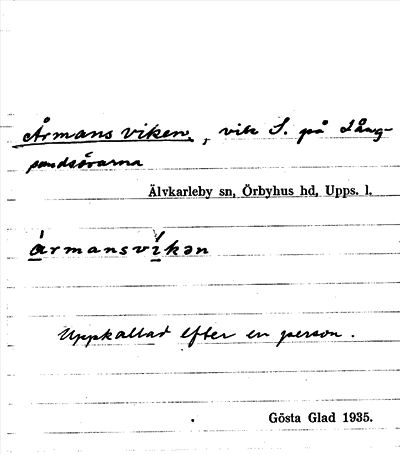 Årmansviken, vik S. på Lång-
sundsörarna
Älvkarleby sn, Örbyhus hd, Upps. l.
ármansvíkən
Uppkallad efter en person.
Gösta Glad 1935.